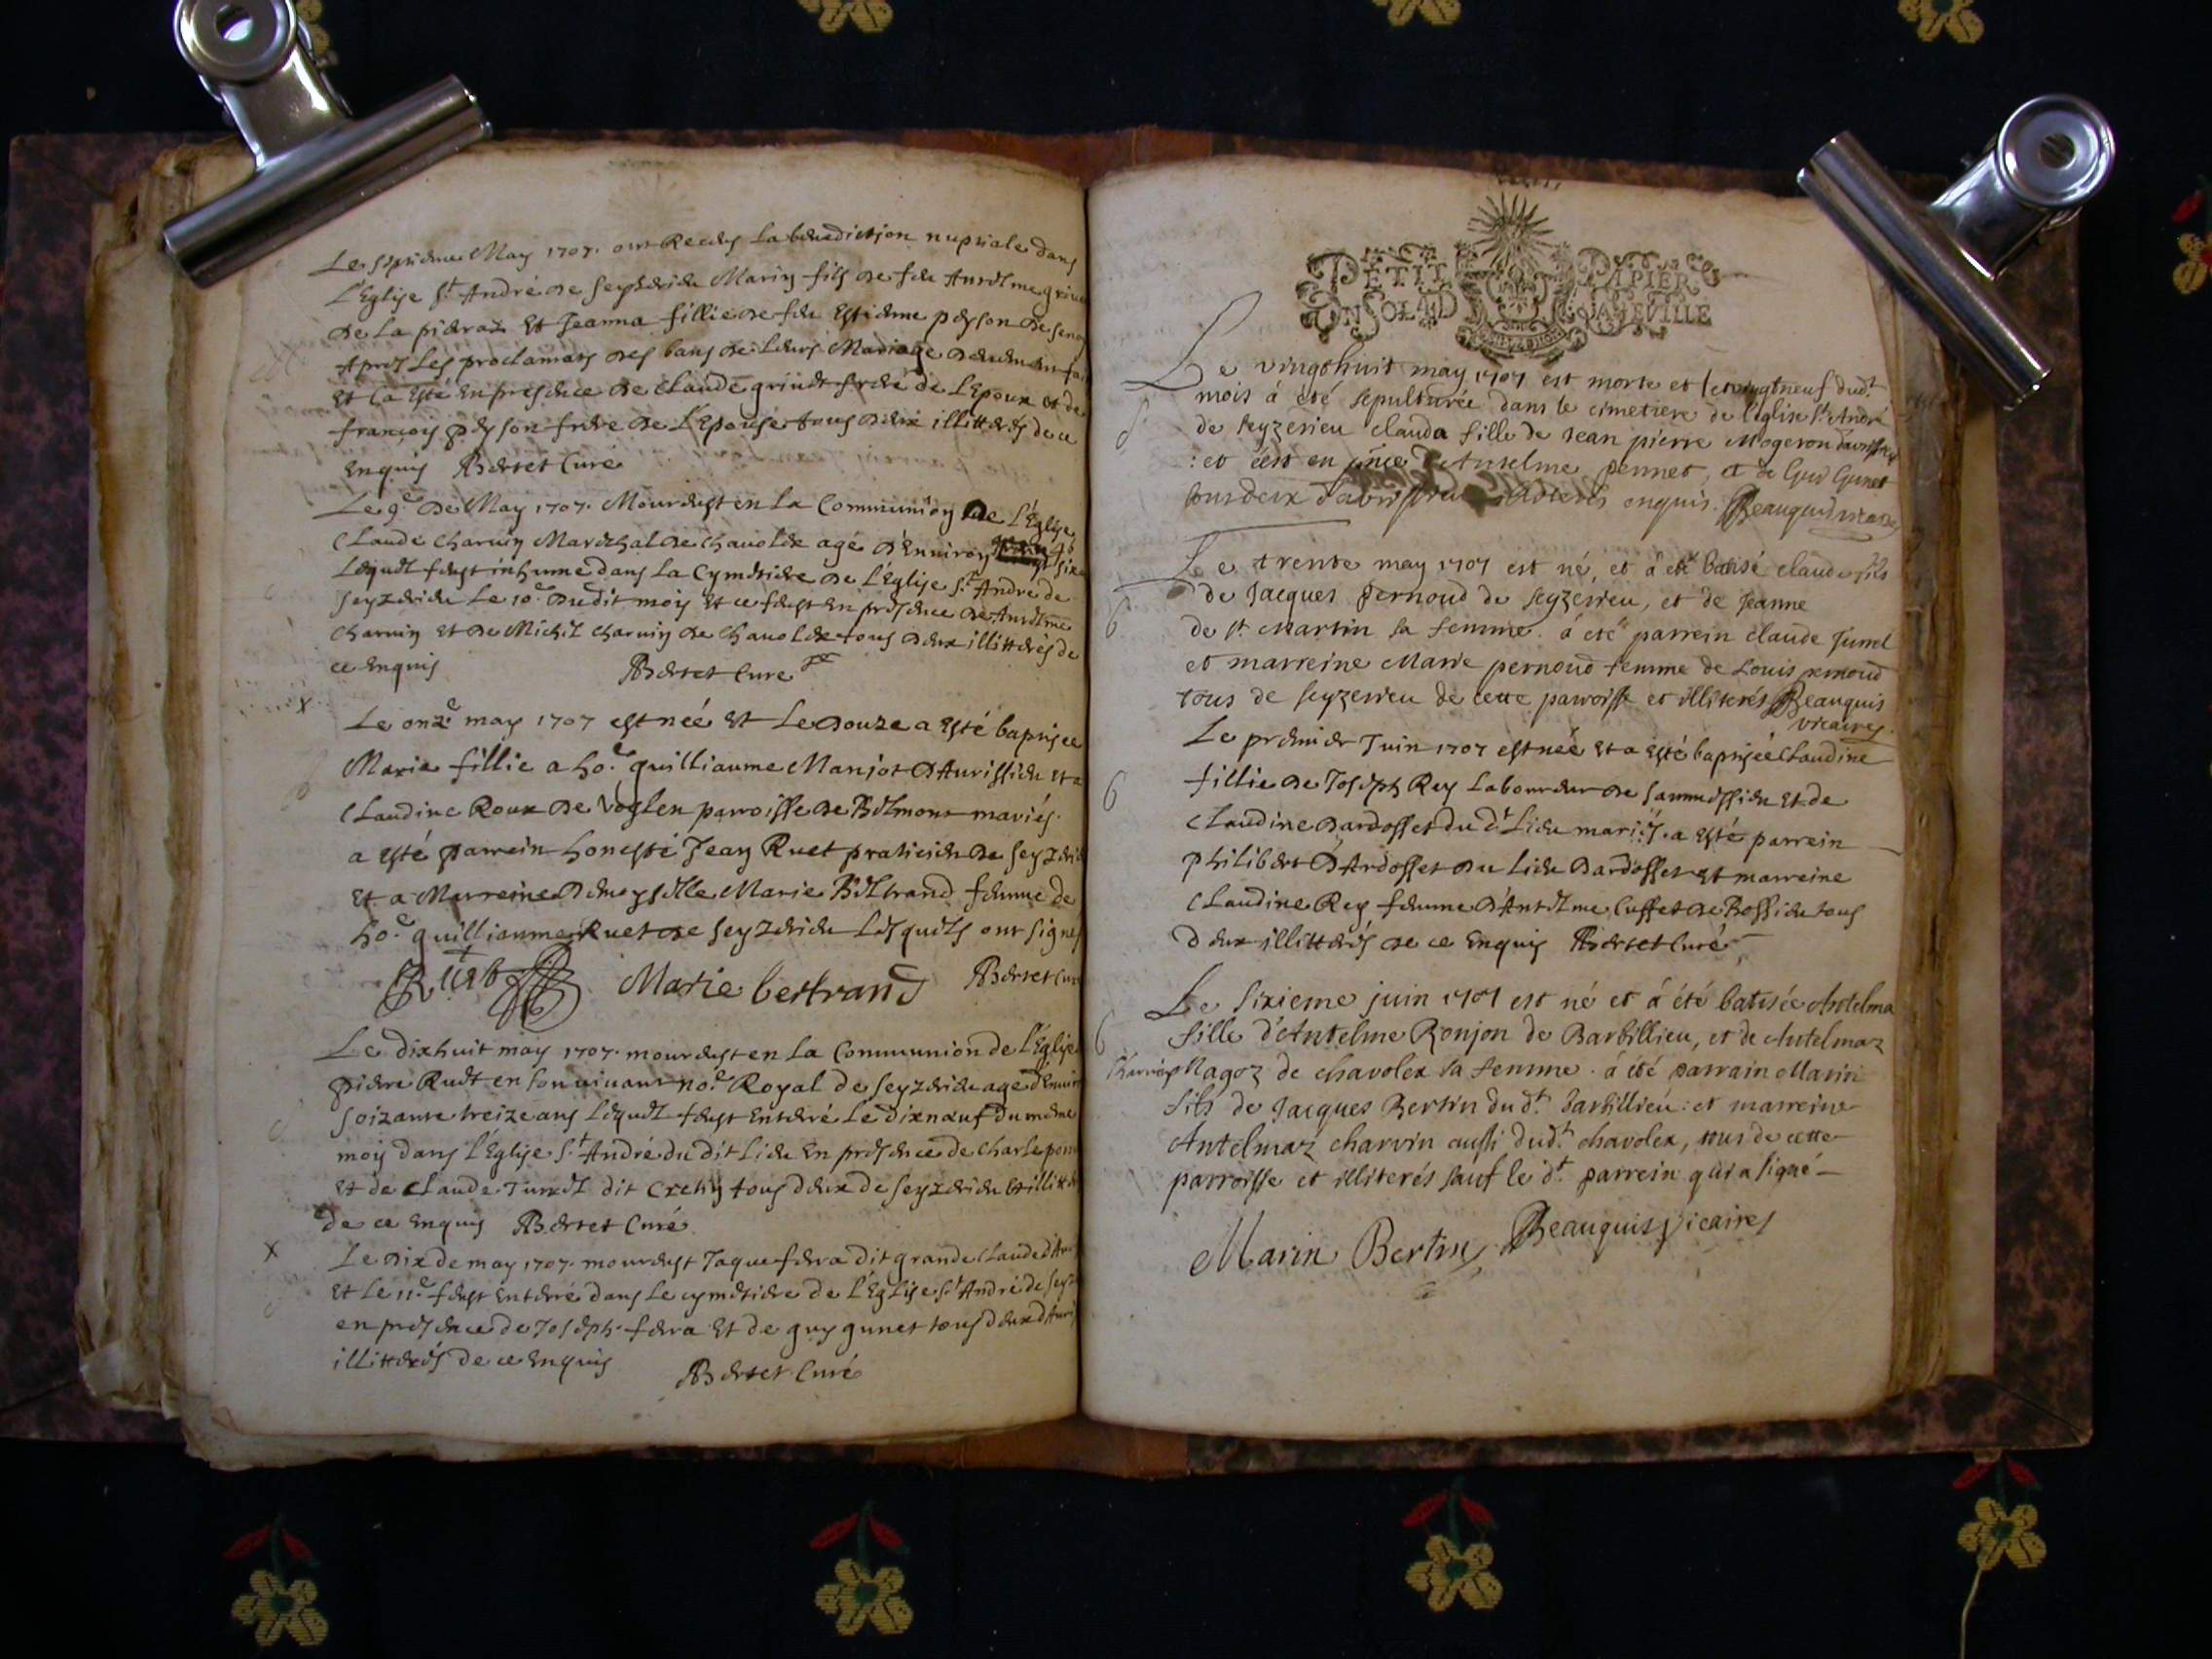 Le septieme May 1707. ont Receus La benediction nuptiale dans
L'Eglise St. André de Seyzerieu Marin fils de feu Antelme
de La pieraz Et Jeanna fillie de feu Estienne peyson de
Apres Les proclamats des bans de Leurs Mariage deuement
Et ca Esté En presence de Claude frere de L'Epoux et de
francois peyson frere de L'Epouse tous deux illitterés de ce
Enquis Bertet Curé
Le 9e. de May 1707. Mourust en La Communion de L'Eglise
Claude Charvin Mareschal de Chavolex agé d'Environ
Lequel feust inhume dans La Cymetiere de L'Eglise St. André de
Seyzerieu Le 10e. dudit mois Et ce feust En presence de Antelme
Charvin Et de Michel Charvin de Chavolex tous deux illitterés de
ce Enquis Bertet Cure
x
Le onze may 1707 est née Et Le douze a Esté baptisée
Marie fillie a ho.e guilliaume Manjot d'Aurissieu Et a
Claudine Roux de Voglen parroisse de Belmont mariés.
a Esté parrein honeste Jean Ruet praticien de
Et a Marreine demoyselle Marie Beltrand femme de
ho.e guilliaume Ruet de Seyzerieu Lesquels ont signés
Ruet Marie bertrand Bertet Curé
Le dixhuit may 1707. mourust en La Communion de L'Eglise
pierre Ruet en son vivant no.e Royal de Seyzerieu agé d'Environ
soizante treize ans Lequel feust Enterré Le dixneuf du mesme
mois dans L'Eglise St. André du dit Lieu En presence de Charle
Et de Claude Junel dit tous deux de Seyzerieu Et
de ce Enquis Bertet Curé
x
Le dix de may 1707. mourust Jaque ferra dit grand Claude
Et Le 11e. feust Enterré dans Le cymetiere de L'Eglise St. André de
en presence de Joseph ferra Et de guy gunet tous deux
illitterés de ce Enquis Bertet Curé
PETIT PAPIER
UN SOL
Le vingthuit may 1707 est morte et le vingtneuf dud.t
mois á été sepulturée dans le cimetiere de l'eglise St. André
de seyzerieu clauda fille de Jean pierre Mogeron
: et c'est en Antelme pennet, et de Gui Gunet
tous deux enquis. Beauquis vicaire
Le trente may 1707 est né, et á été batisé claude fils
6
de Jacques pernoud de seyzerieu, et de Jeanne
de St. Martin sa femme. á eté parrein claude Junel
et marreine Marie pernoud femme de Louis pernoud
tous de seyzerieu de cette parroisse et illiterés Beauquis
vicaire
Le premier Juin 1707 est née Et a esté baptisée Claudine
6
fillie de Joseph Rey Laboureur de Et de
Claudine dardosset du d.t Lieu mariés. a Esté parrein
philibert D'Ardosset du Lieu dardosset Et marreine
Claudine Rey femme d'Antelme Cusset de Bossieu tous
deux illitterés de ce Enquis Bertet Curé
Le sixieme juin 1707 est né et á été batisée Antelma
6
fille d'Antelme Ronjon de Barbillieu, et de Antelmaz
Nagoz de chavolex sa femme. á été parrain Marin
fils de Jacques Bertin du d.t barbillieu: et marreine
Antelmaz charvin aussi dud.t chavolex, tous de cette
parroisse et illiterés sauf le d.t parrein qui a signé
Marin Bertin Beauquis vicaire